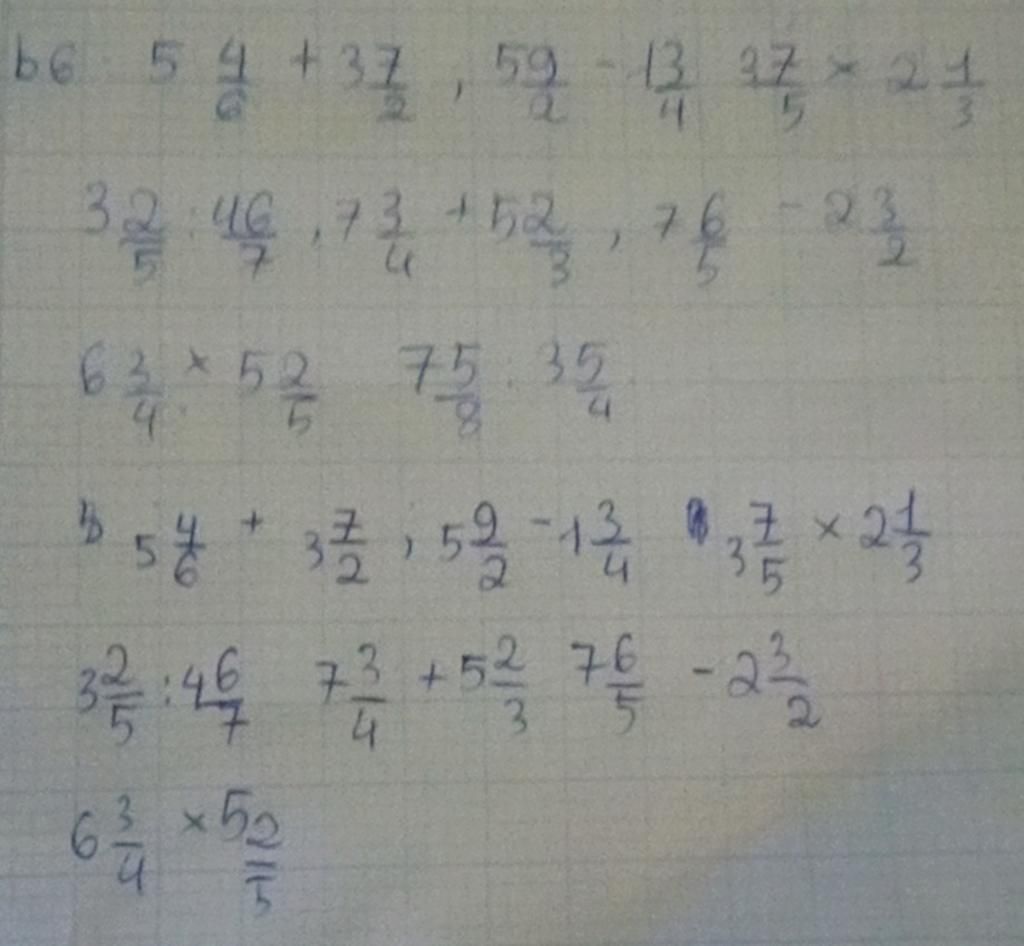 b6 5 4/6 + 3 7/2 , 5 9/2 - 1 3/4 3 7/5 × 2 1/3
3 2/5 : 4 6/7 , 7 3/4 + 5 2/3 , 7 6/5 - 2 3/2
6 3/4 × 5 2/5 7 5/8 : 3 5/4
b 5 4/6 + 3 7/2 , 5 9/2 - 1 3/4 3 7/5 × 2 1/3
3 2/5 : 4 6/7 7 3/4 + 5 2/3 7 6/5 - 2 3/2
6 3/4 × 5 2/5